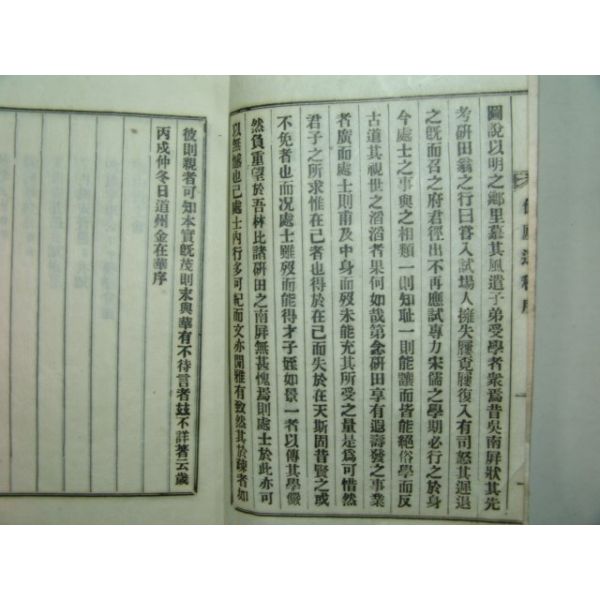 圖說以明之鄕里慕其風遣子弟受學者衆焉昔吳南屛狀其先
考硏田翁之行曰嘗入試場人擁失屨覓屨復入有司怒其遲退
之旣而召之府君徑出不再應試專力宋儒之學期必行之於身
今處士之事與之相類一則知耻一則能讓而皆能絕俗學而反
古道其視世之滔滔者果何如哉第念硏田享有遐壽發之事業
者廣而處士則甫及中身而歿未能充其所受之量是爲可惜然
君子之所求惟在己者也得於在己而失於在天斯固昔賢之或
不免者也而况處士雖歿而能得才子姪如景一者以傳其學儼
然負重望於吾林比諸硏田之南屛無甚愧焉則處士於此亦可
以無憾也已處士內行多可紀而文亦閒雅有致然其於疎者如
彼則親者可知本實旣茂則末與華有不待言者玆不詳著云歲
丙戌仲冬日道州金在華序